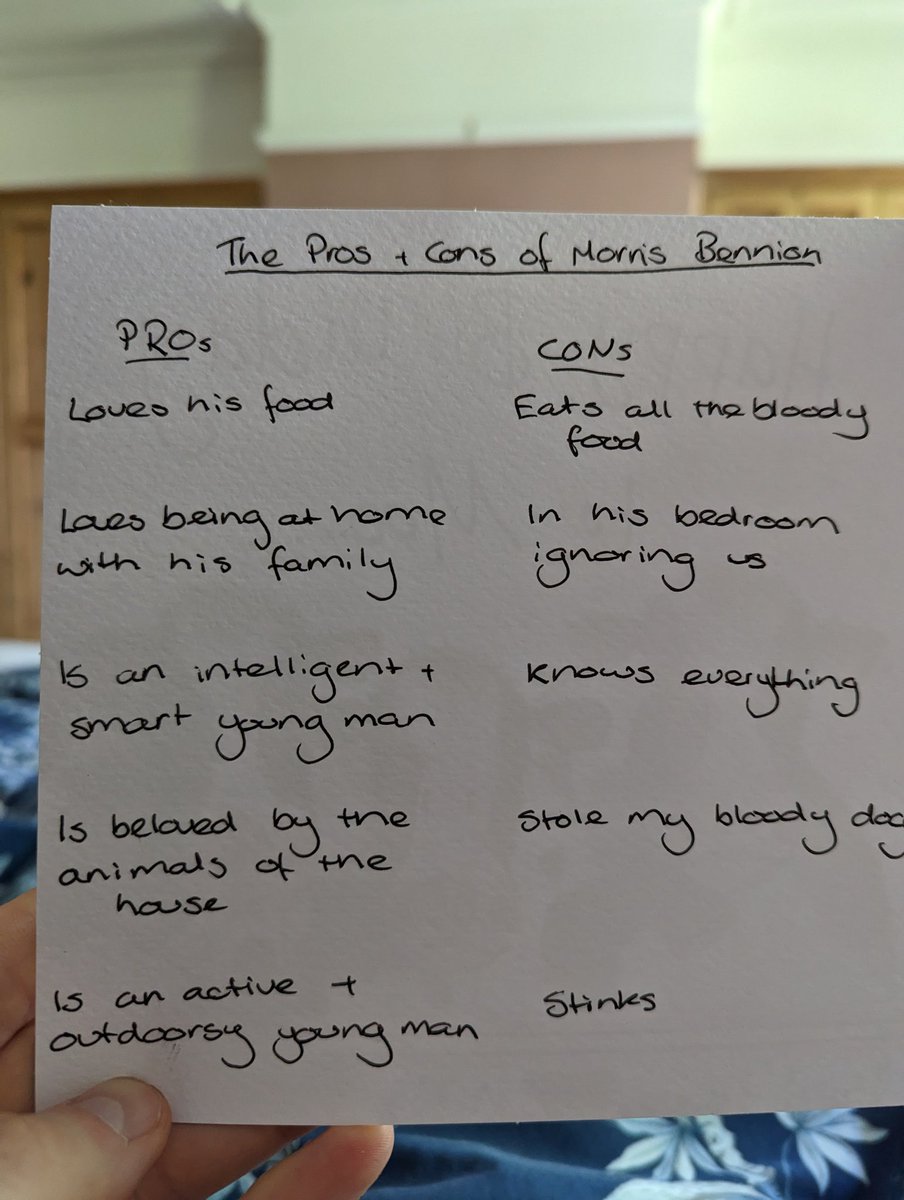 The Pros + Cons of Morris Bennion
PROs
Loves his food
Loves being at home
with his family
Is an intelligent +
smart young man
Is beloved by the
animals of the
house
Is an active +
outdoorsy young man
CONs
Eats all the bloody
food
In his bedroom
ignoring us
Knows everything
Stole my bloody dog
Stinks